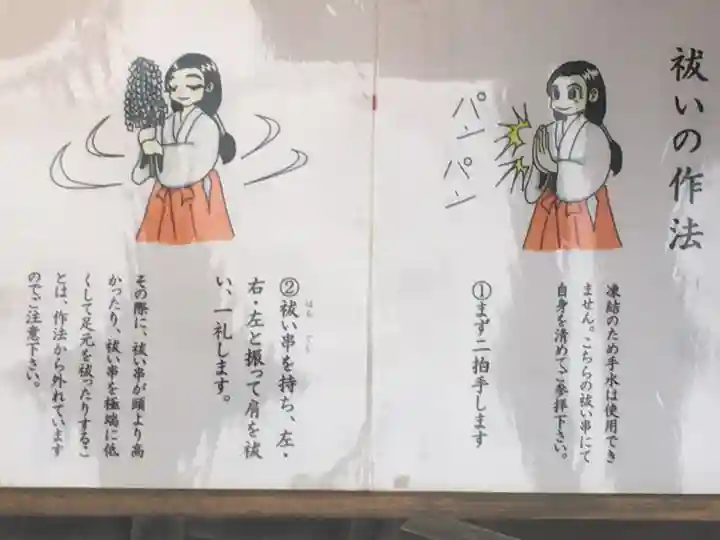 祓いの作法
パン
パン
凍結のため手水は使用でき
ません。こちらの祓い串にて
自身を清めてご参拝下さい。
①まず二拍手します
②祓い串を持ち、左・
はら
ぐし
右・左と振って肩を祓
い、一礼します。
その際に、祓い串が頭より高
かったり、祓い串を極端に低
くして足元を祓ったりするこ
とは、作法から外れています
のでご注意下さい。